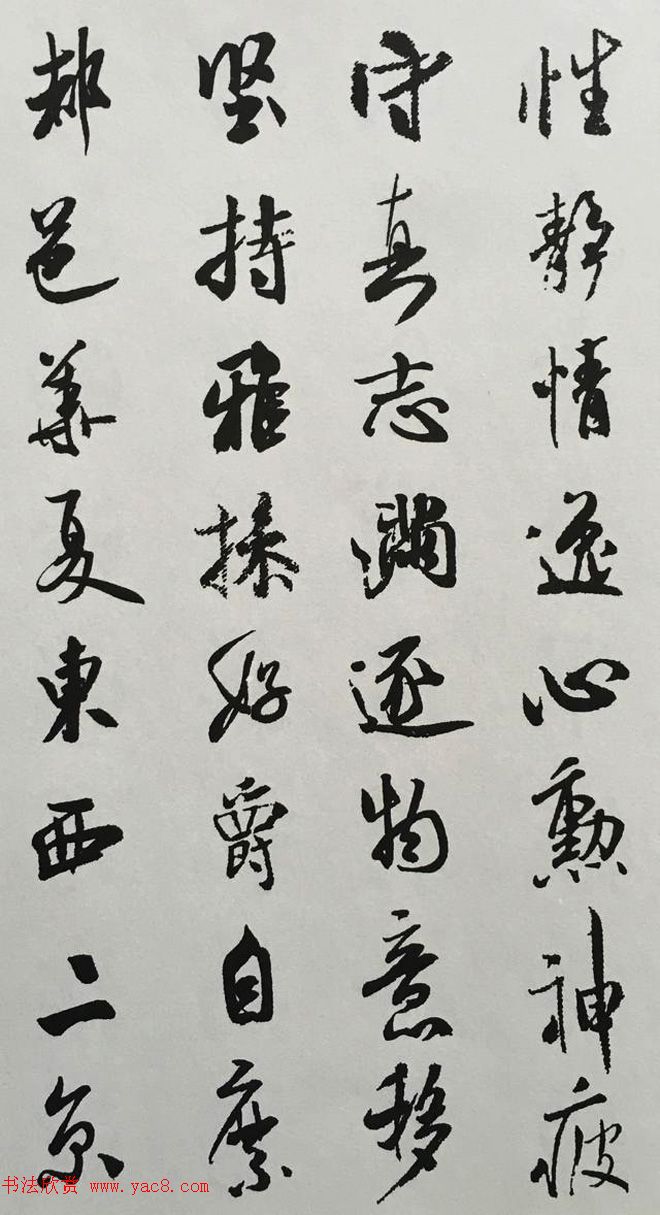 性靜情逸心勲神疲
守真志滿逐物意移
堅持雅操好爵自縻
都邑華夏東西二京
书法欣赏 www.yac8.com